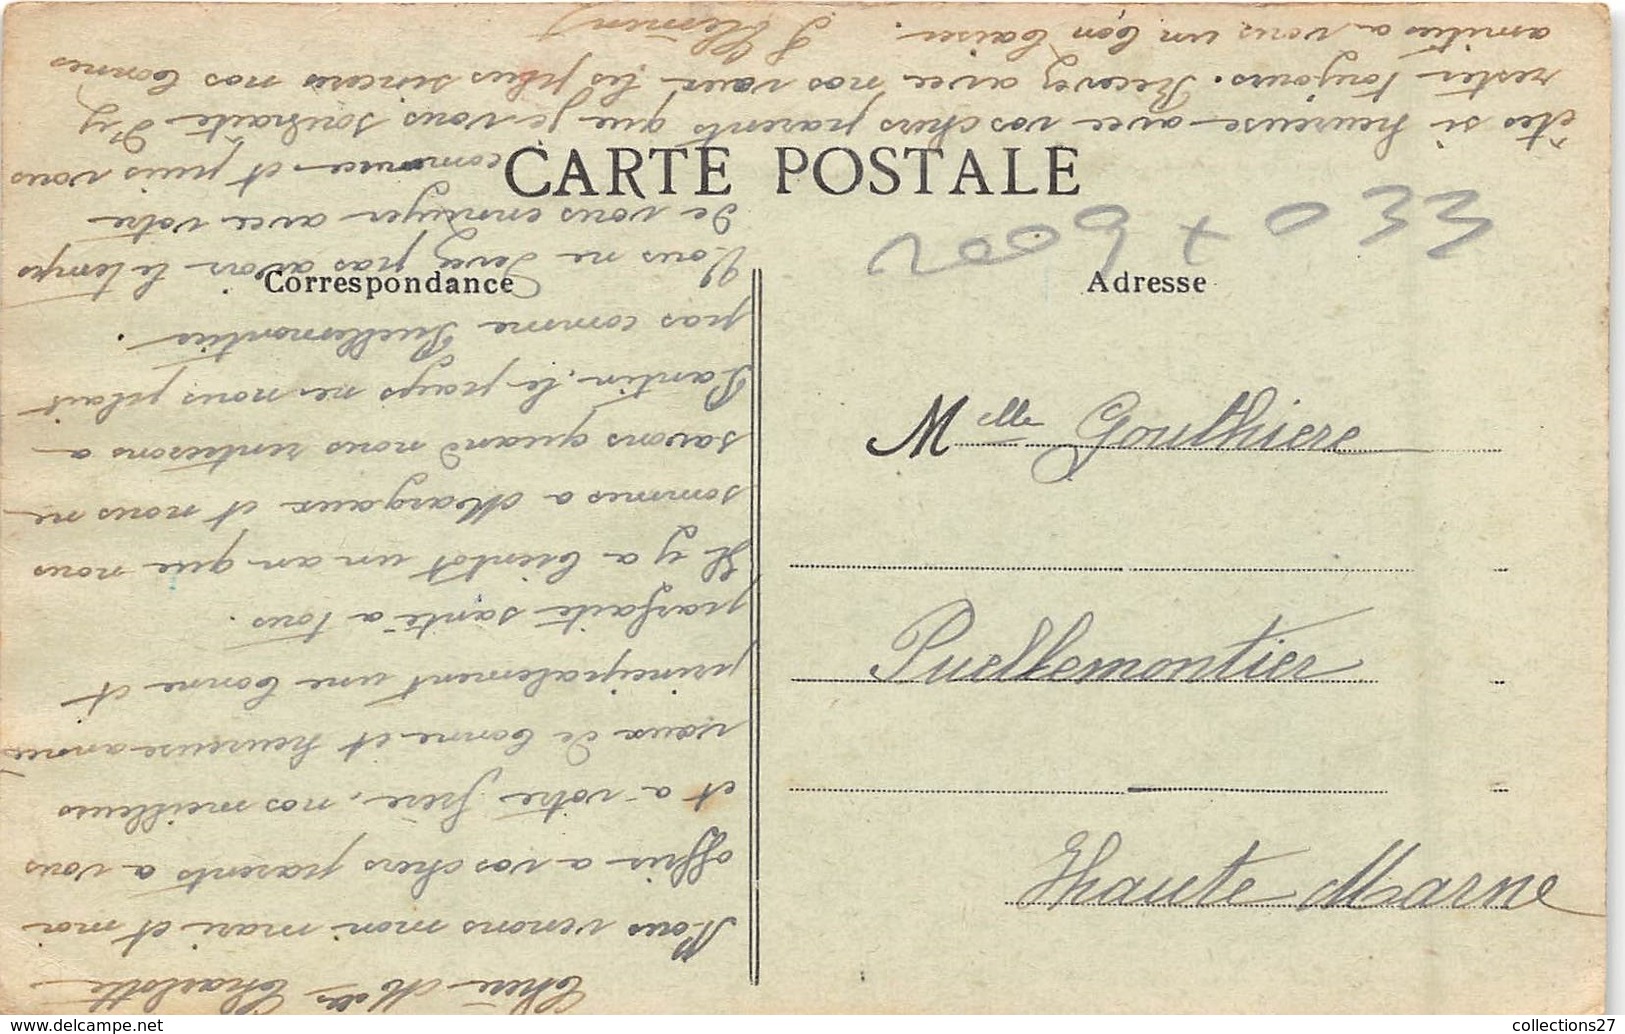 CARTE POSTALE
Correspondance
Adresse
Melle Goulhiere
Puellemontier
Haute Marne
Chère Melle Charlotte
Nous venons mon mari et moi
offrir a vos chers parents a vous
et a votre frère, nos meilleurs
vœux de bonne et heureuse année
principalement une bonne et
parfaite santé a tous.
Il y a bientot un an que nous
sommes a Margaux et nous ne
savons quand nous rentrerons a
Pantin, le pays ne nous plait
pas comme Puellemontier.
Vous ne devez pas avoir le temps
de vous ennuyer avec votre
commerce et puis vous
êtes si heureuse avec vos chers parents que je vous souhaite d'y
rester toujours. Recevez avec nos vœux les plus sincères nos bonnes
amitiés a vous un bon baiser.
collections27